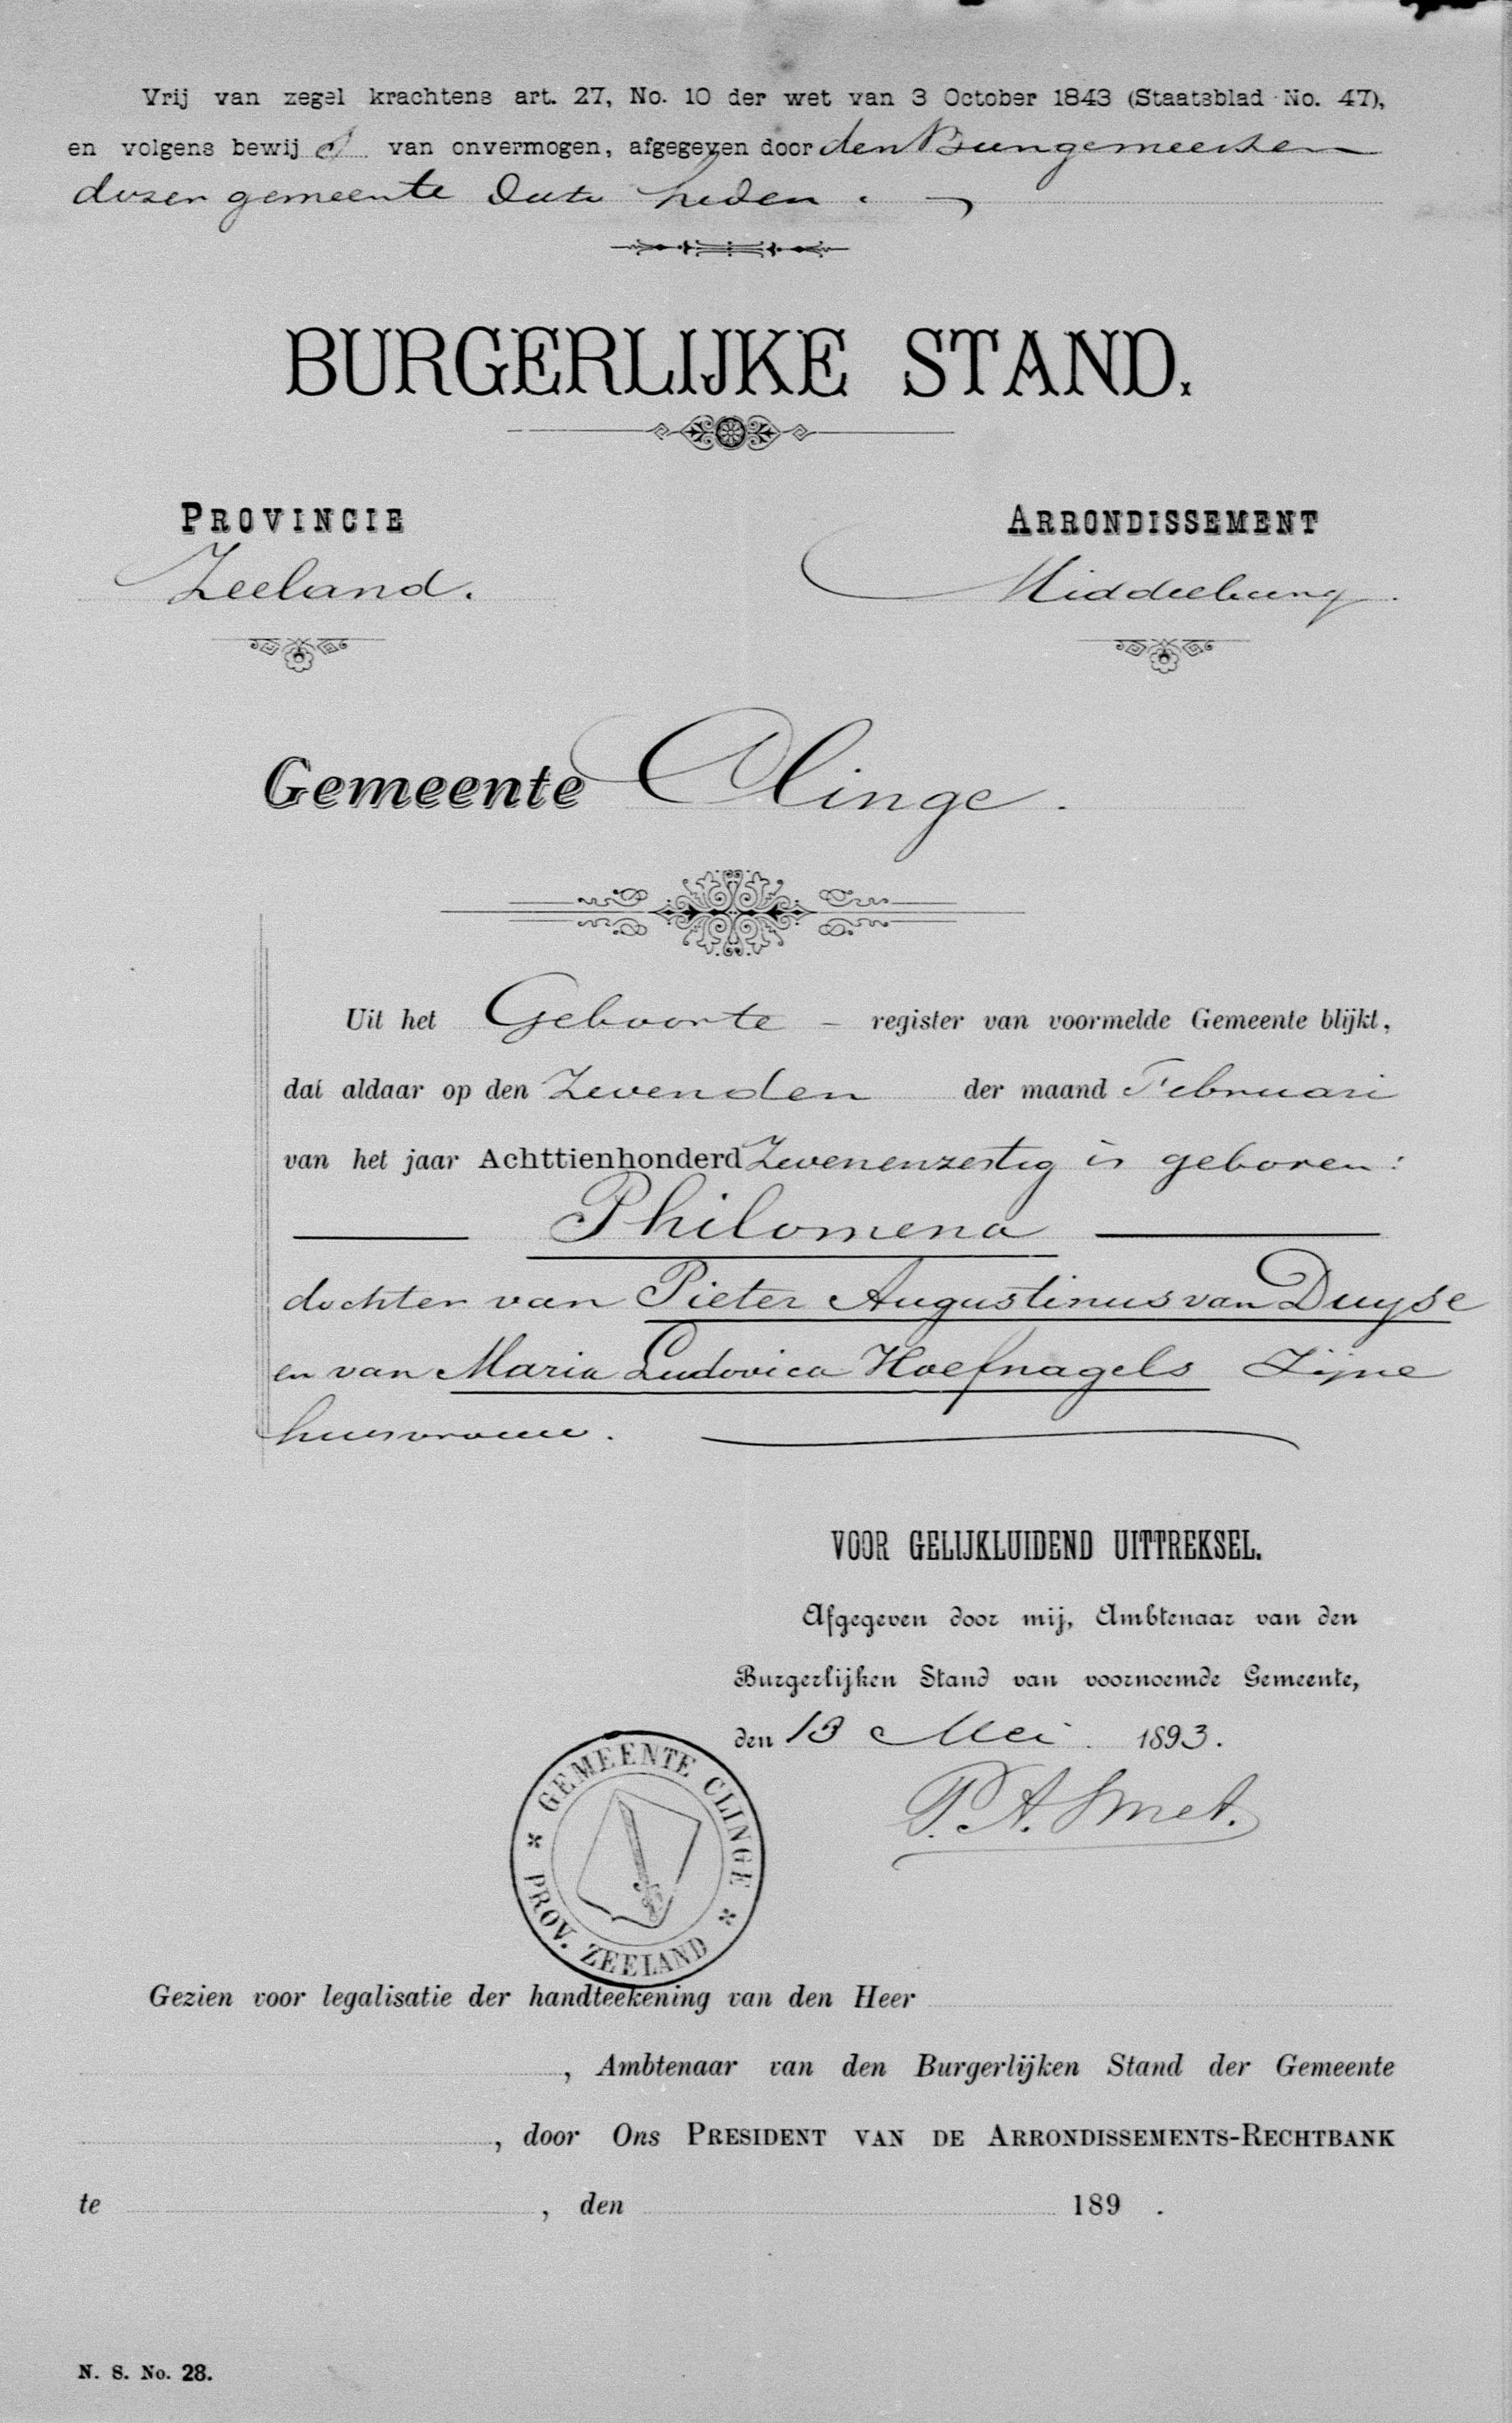 Vrij van zegel krachtens art. 27, No. 10 der wet van 3 October 1843 (Staatsblad No. 47),
en volgens bewijs van onvermogen, afgegeven door den Burgemeester
dezer gemeente dato heden.
BURGERLIJKE STAND.
PROVINCIE
Zeeland.
ARRONDISSEMENT
Middelburg.
Gemeente Clinge.
Uit het Geboorte - register van voormelde Gemeente blijkt,
dat aldaar op den Zevenden der maand Februari
van het jaar Achttienhonderd Zevenenzestig is geboren:
Philomena
dochter van Pieter Augustinus van Duyse
en van Maria Ludovica Hoefnagels Zijne
huisvrouw.
VOOR GELIJKLUIDEND UITTREKSEL.
Afgegeven door mij, Ambtenaar van den
Burgerlijken Stand van voornoemde Gemeente,
den 13 Mei 1893.
P. A. Smet.
GEMEENTE CLINGE
PROV. ZEELAND
Gezien voor legalisatie der handteekening van den Heer
, Ambtenaar van den Burgerlijken Stand der Gemeente
, door Ons PRESIDENT VAN DE ARRONDISSEMENTS-RECHTBANK
te , den 189 .
N. S. No. 28.